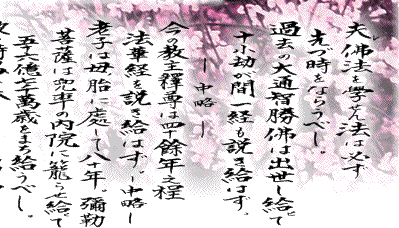 夫佛法を學せん法は必ず
先づ時をならうべし。
過去の大通智勝佛は出世し給て
十小劫が間一経も説き給はず。
―中略―
今の教主釋尊は四十餘年之程
法華経を説き給はず。―中略―
老子は母胎に處して八十年。彌勒
菩薩は兜率の内院に籠らせ給て
五十六億七千萬歳をまち給うべし。